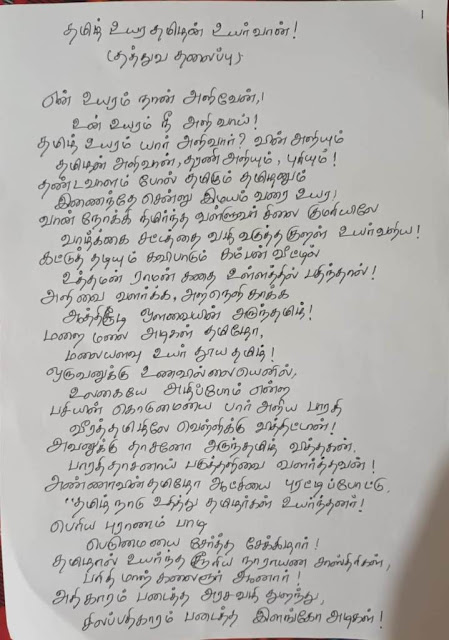 1
தமிழ் உயர தமிழன் உயர்வான்!
(தத்துவ தலைப்பு)
என் உயரம் நான் அறிவேன்,!
உன் உயரம் நீ அறிவாய்!
தமிழ் உயரம் யார் அறிவார்? விண் அறியும்
தமிழன் அறிவான், தரணி அறியும், புரியும்!
தண்டவாளம் போல் தமிழும் தமிழனும்
இணைந்தே சென்று இமயம் வரை உயர;
வான் நோக்கி நிமிர்ந்த வள்ளுவர் சிலை குமரியிலே
வாழ்க்கை சட்டத்தை வகுத்த குறள் உயர்வழிய!
கட்டுத் தறியும் கவிபாடும் கம்பன் வீட்டில்
உத்தமன் ராமன் கதை உள்ளத்தில் பதிந்தாள்!
அறிவை வளர்க்க, அறநெறி காக்க
ஆத்திசூடி ஔவையின் அருந்தமிழ்!
மறை மலை அடிகள் தமிழோ,
மலையளவு உயர் தூய தமிழ்!
ஒருவனுக்கு உணவில்லையெனில்,
உலகையே அழிப்போம் என்ற
பசியின் கொடுமையை பார் அறிய பாரதி
வீரத்தமிழிலே வெளிக்கு வித்திட்டான்!
அவனுக்கு தாசனோ அருந்தமிழ் வித்தகன்.
பாரதிதாசனாய் பகுத்தறிவை வளர்த்தவன்!
அண்ணாவின் தமிழோ ஆட்சியை புரட்டிப்போட்டு
"தமிழ் நாடு உதித்து தமிழர்கள் உயர்ந்தனர்!
பெரிய புராணம் பாடி
பெருமையை சேர்த்த சேக்கிழார்!
தமிழால் உயர்ந்த சூரிய நாராயண சாஸ்திரிகள்,
பரிதிமாற் கலைஞர் ஆனார்!
அதிகாரம் படைத்த அரச வழி துறந்து,
சிலப்பதிகாரம் படைத்த இளங்கோ அடிகள்!